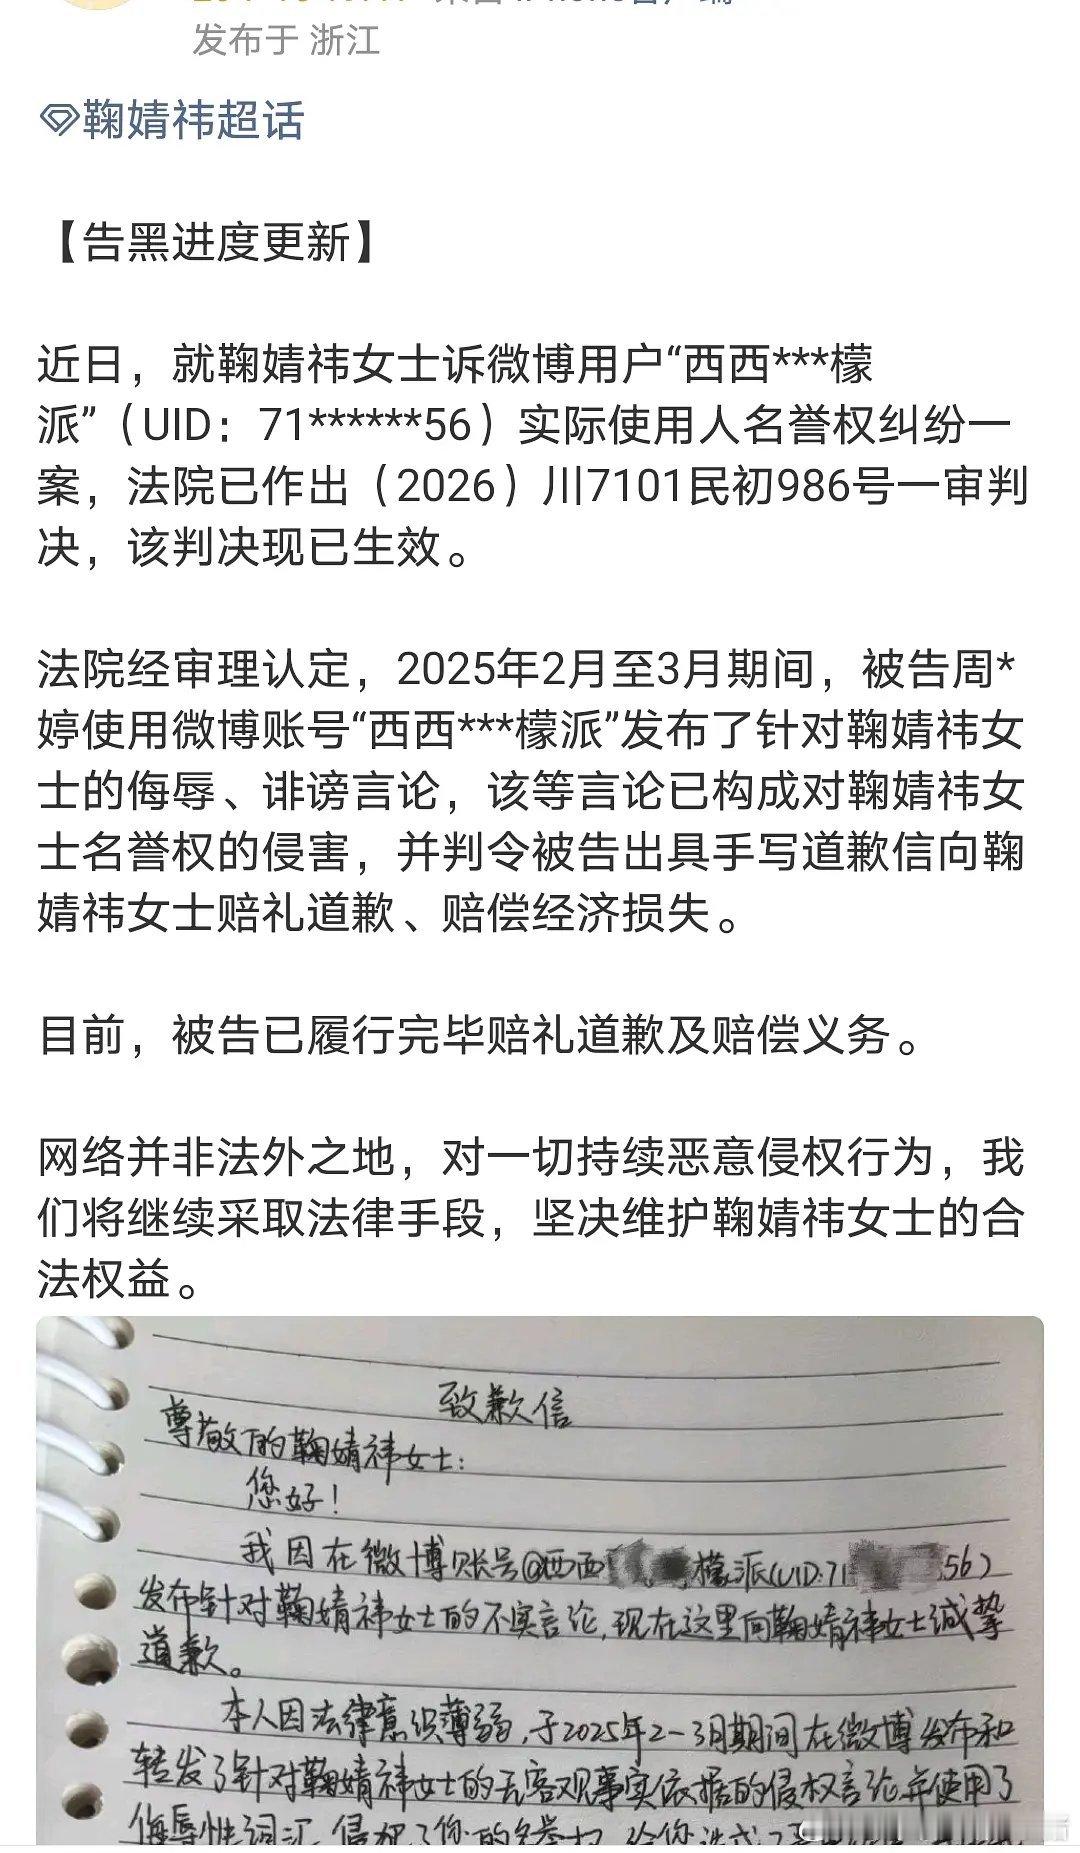 发布于 浙江
鞠婧祎超话
【告黑进度更新】
近日，就鞠婧祎女士诉微博用户“西西***檬
派”（UID：71******56）实际使用人名誉权纠纷一
案，法院已作出（2026）川7101民初986号一审判
决，该判决现已生效。
法院经审理认定，2025年2月至3月期间，被告周*
婷使用微博账号“西西***檬派”发布了针对鞠婧祎女
士的侮辱、诽谤言论，该等言论已构成对鞠婧祎女
士名誉权的侵害，并判令被告出具手写道歉信向鞠
婧祎女士赔礼道歉、赔偿经济损失。
目前，被告已履行完毕赔礼道歉及赔偿义务。
网络并非法外之地，对一切持续恶意侵权行为，我
们将继续采取法律手段，坚决维护鞠婧祎女士的合
法权益。
致歉信
尊敬的鞠婧祎女士：
您好！
我因在微博账号@西西 檬派(UID:71 56)
发布针对鞠婧祎女士的不实言论,现在这里向鞠婧祎女士诚挚
道歉。
本人因法律意识薄弱,于2025年2-3月期间在微博发布和
转发了针对鞠婧祎女士的无客观事实依据的侵权言论并使用了
侮辱性词汇